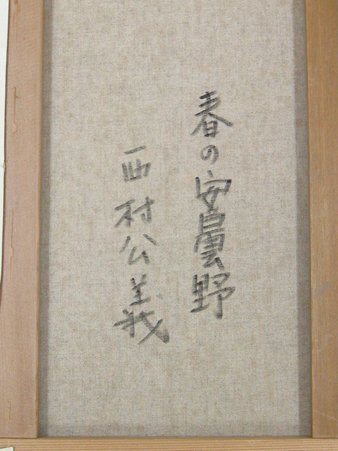 春の安曇野
西村公義